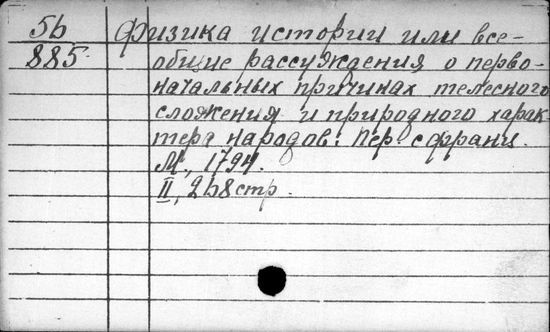 5б Физика истории или все-
885. общие рассуждения о перво-
начальных причинах телесного
сложения и природного харак
тера народов: Пер. с франц.
М., 1794.
II, 268 стр.